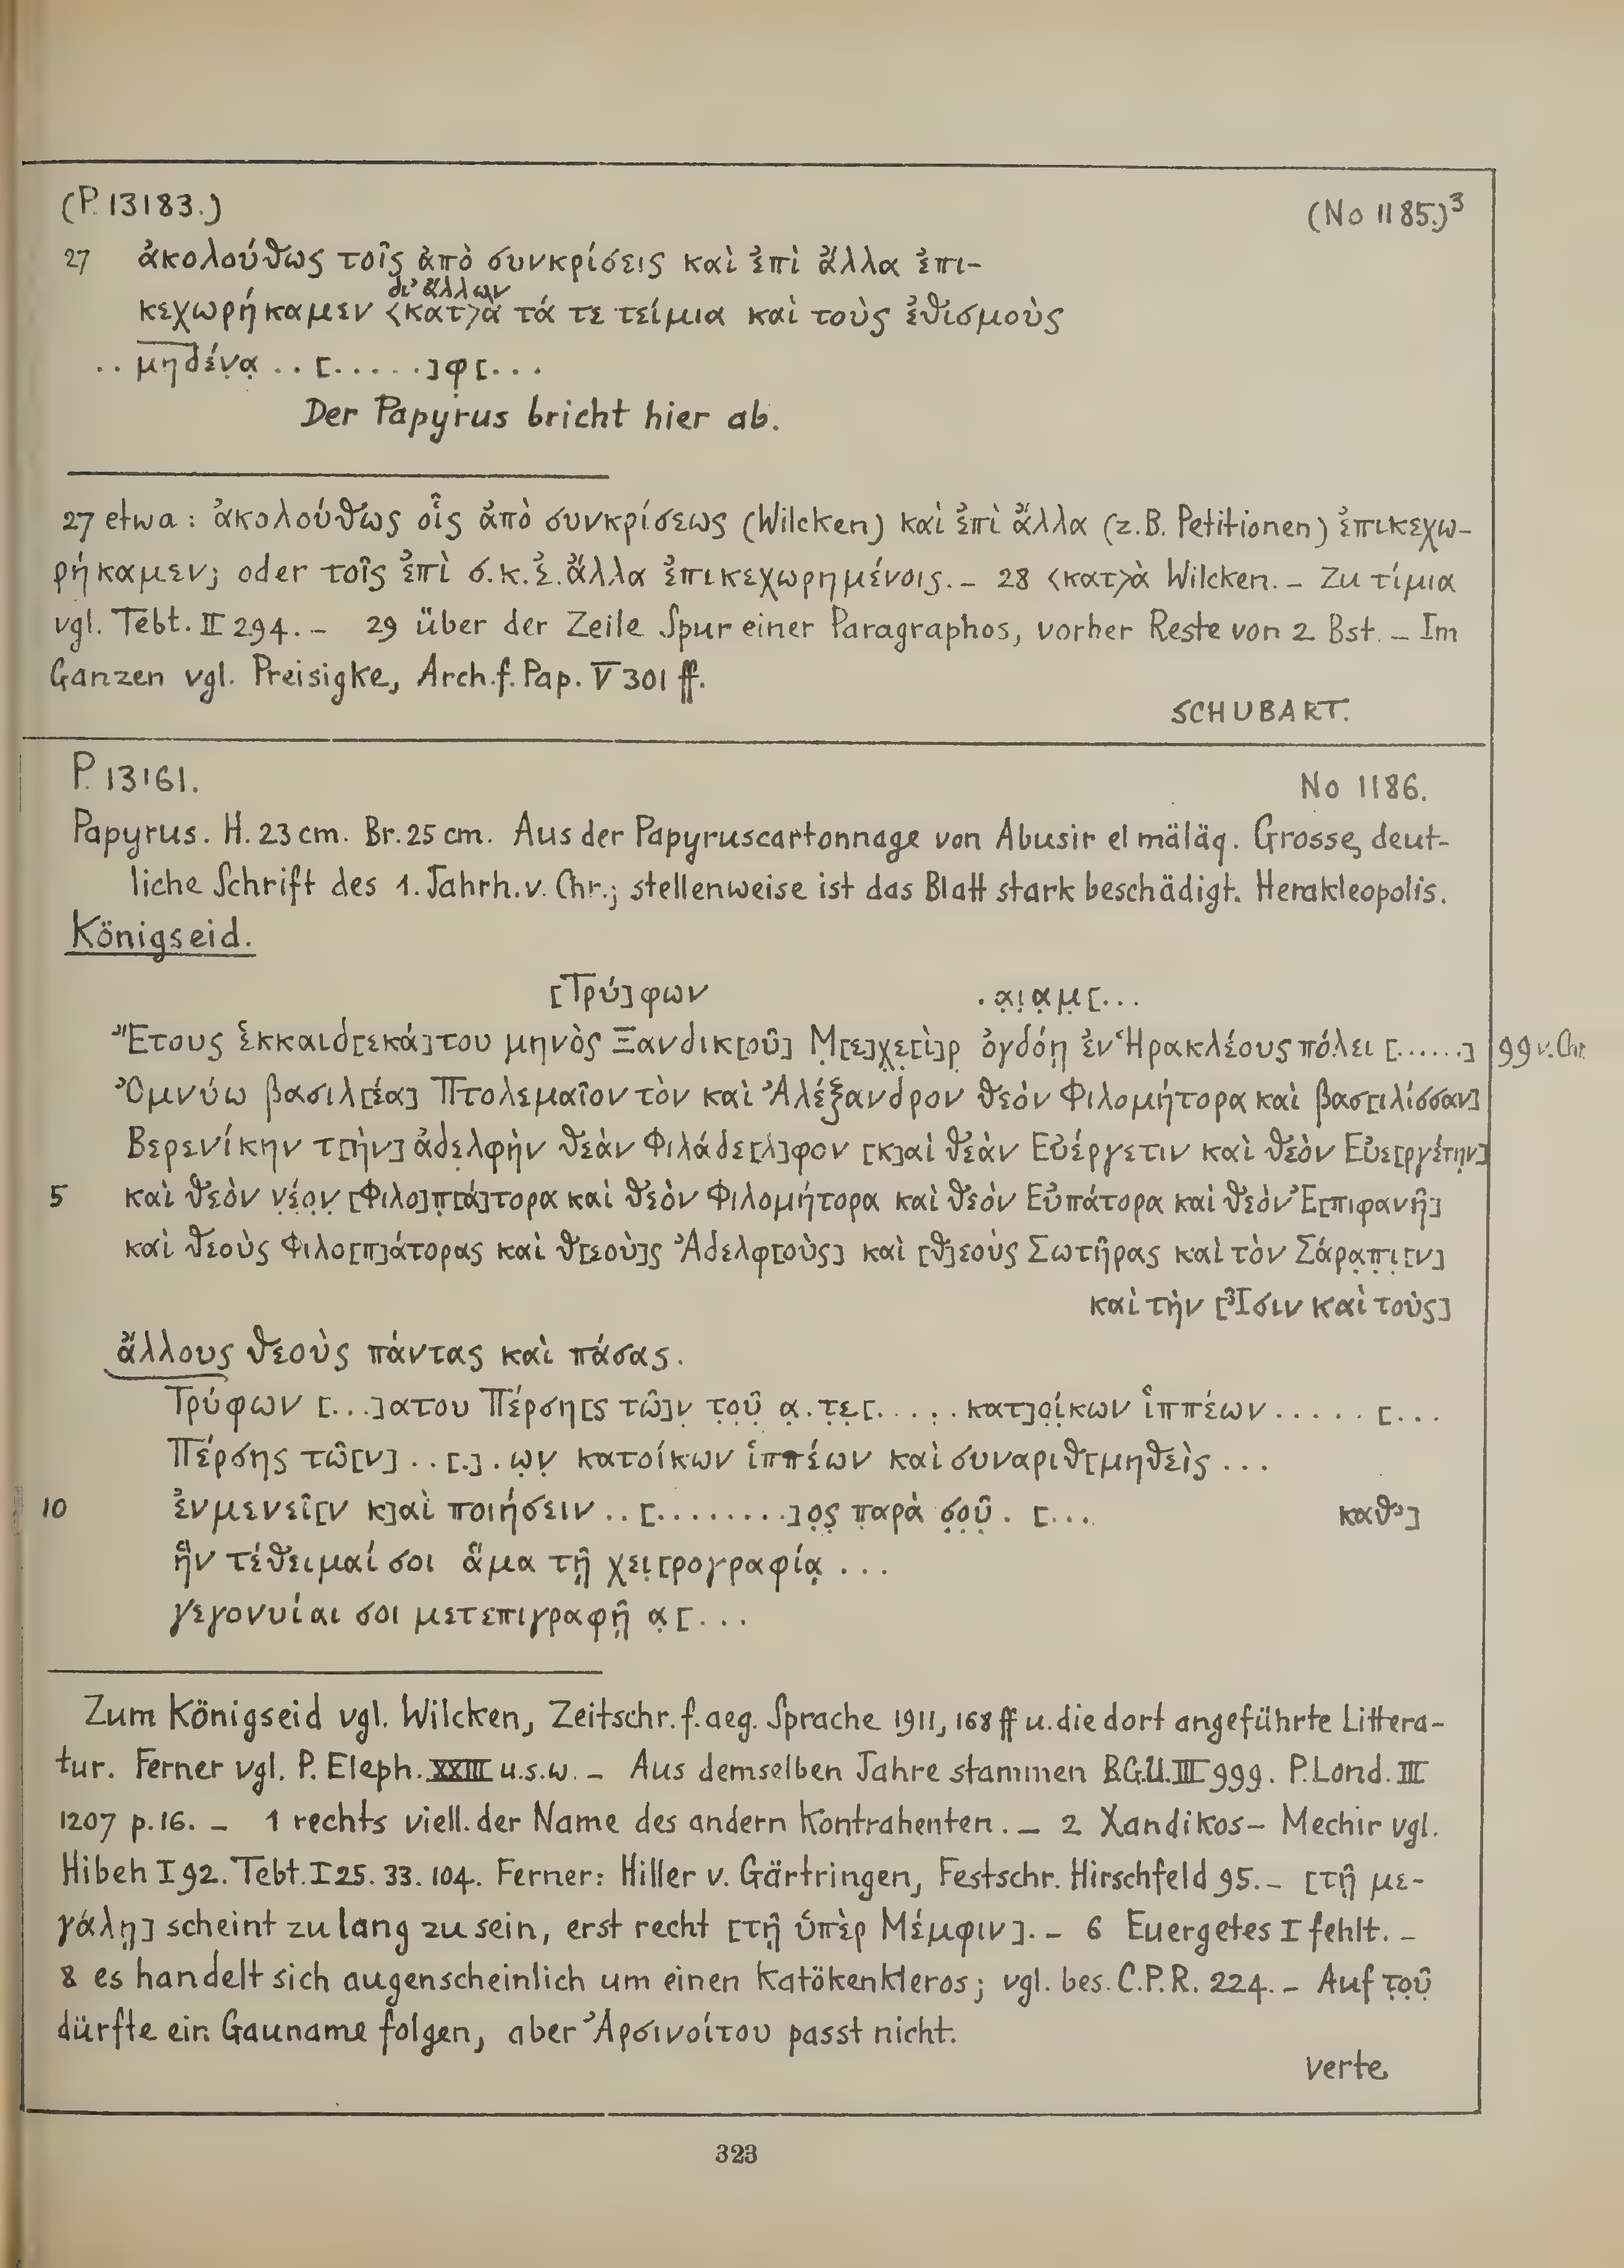 (P. 13183.) (No 1185.)³
27 ἀκολούθως τοῖς ἀπὸ συνκρίσεις καὶ ἐπὶ ἄλλα ἐπι-
δι' ἄλλων
κεχωρήκαμεν <κατ>ὰ τά τε τείμια καὶ τοὺς ἐθισμοὺς
.. μηδένα̣ .. [.....]φ̣[...
Der Papyrus bricht hier ab.
27 etwa: ἀκολούθως οἷς ἀπὸ συνκρίσεως (Wilcken) καὶ ἐπὶ ἄλλα (z.B. Petitionen) ἐπικεχω-
ρήκαμεν; oder τοῖς ἐπὶ σ.κ.ἐ. ἄλλα ἐπικεχωρημένοις. – 28 <κατ>ὰ Wilcken. – Zu τίμια
vgl. Tebt. II 294. – 29 über der Zeile Spur einer Paragraphos, vorher Reste von 2 Bst. – Im
Ganzen vgl. Preisigke, Arch. f. Pap. V 301 ff.
SCHUBART.
P. 13161. No 1186.
Papyrus. H. 23 cm. Br. 25 cm. Aus der Papyruscartonnage von Abusir el mäläq. Grosse, deut-
liche Schrift des 1. Jahrh. v. Chr.; stellenweise ist das Blatt stark beschädigt. Herakleopolis.
Königseid.
[Τρύ]φων . α̣ι̣α̣μ̣[...
Ἔτους ἑκκαιδ[εκά]του μηνὸς Ξανδικ[οῦ] Μ̣[ε]χ̣ε̣[ὶ]ρ ὀγδόη̣ ἐν Ἡρακλέους πόλει [......] 99 v. Chr.
Ὀμνύω βασιλ[έα] Πτολεμαῖον τὸν καὶ Ἀλέξανδρον θεὸν Φιλομήτορα καὶ βασ[ιλίσσαν]
Βερενίκην τ[ὴν] ἀδελφὴν θεὰν Φιλάδε[λ]φον [κ]αὶ θεὰν Εὐέργετιν καὶ θεὸν Εὐε[ργέτην]
5 καὶ θεὸν ν̣έ̣ο̣ν̣ [Φιλο]π̣[ά]τορα καὶ θεὸν Φιλομήτορα καὶ θεὸν Εὐπάτορα καὶ θεὸν Ἐ[πιφανῆ]
καὶ θεοὺς Φιλο[π]άτορας καὶ θ[εοὺ]ς Ἀδελφ[οὺς] καὶ [θ]εοὺς Σωτῆρας καὶ τὸν Σάρα̣π̣ι̣[ν]
καὶ τὴν [Ἶσιν καὶ τοὺς]
ἄλλους θεοὺς πάντας καὶ πάσας.
Τρύφων [...]ατου Πέρση[ς τῶ]ν̣ τ̣ο̣ῦ̣ α̣.τ̣ε̣[..... κατ]ο̣ί̣κων ἱππέων ..... [...
Πέρσης τῶ[ν] .. [.] . ω̣ν̣ κατοίκων ἱππέων καὶ συναριθ[μηθεὶς ...
10 ἐνμενεῖ[ν κ]αὶ ποιήσειν .. [........]ο̣ς̣ π̣αρὰ σ̣ο̣ῦ̣ . [... καθ']
ἣν τέθειμαί σοι ἅμα τῇ χει̣[ρογραφίᾳ ...
γεγονυίαι σοι μετεπιγραφῇ α̣[...
Zum Königseid vgl. Wilcken, Zeitschr. f. aeg. Sprache 1911, 168 ff u. die dort angeführte Littera-
tur. Ferner vgl. P. Eleph. XXIII u.s.w. – Aus demselben Jahre stammen B.G.U. III 999. P. Lond. III
1207 p. 16. – 1 rechts viell. der Name des andern Kontrahenten. – 2 Xandikos – Mechir vgl.
Hibeh I 92. Tebt. I 25. 33. 104. Ferner: Hiller v. Gärtringen, Festschr. Hirschfeld 95. – [τῇ με-
γάλῃ] scheint zu lang zu sein, erst recht [τῇ ὑπὲρ Μέμφιν]. – 6 Euergetes I fehlt. –
8 es handelt sich augenscheinlich um einen Katökenkleros; vgl. bes. C.P.R. 224. – Auf τ̣ο̣ῦ̣
dürfte ein Gauname folgen, aber Ἀρσινοίτου passt nicht.
verte
323